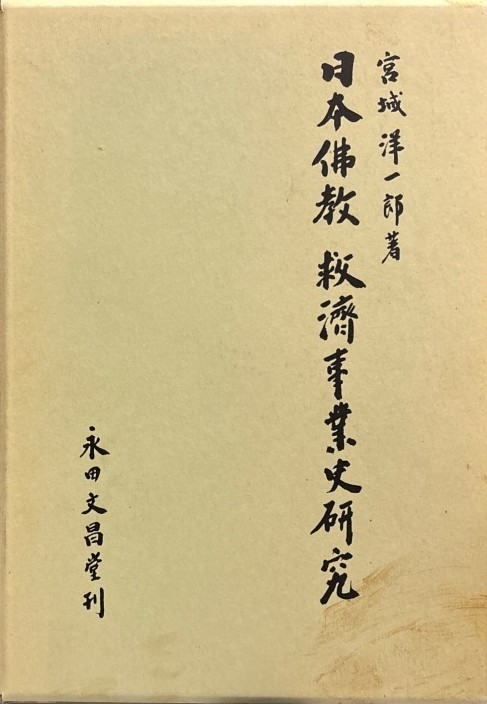 宮城洋一郎著
日本佛教 救濟事業史研究
永田文昌堂刊